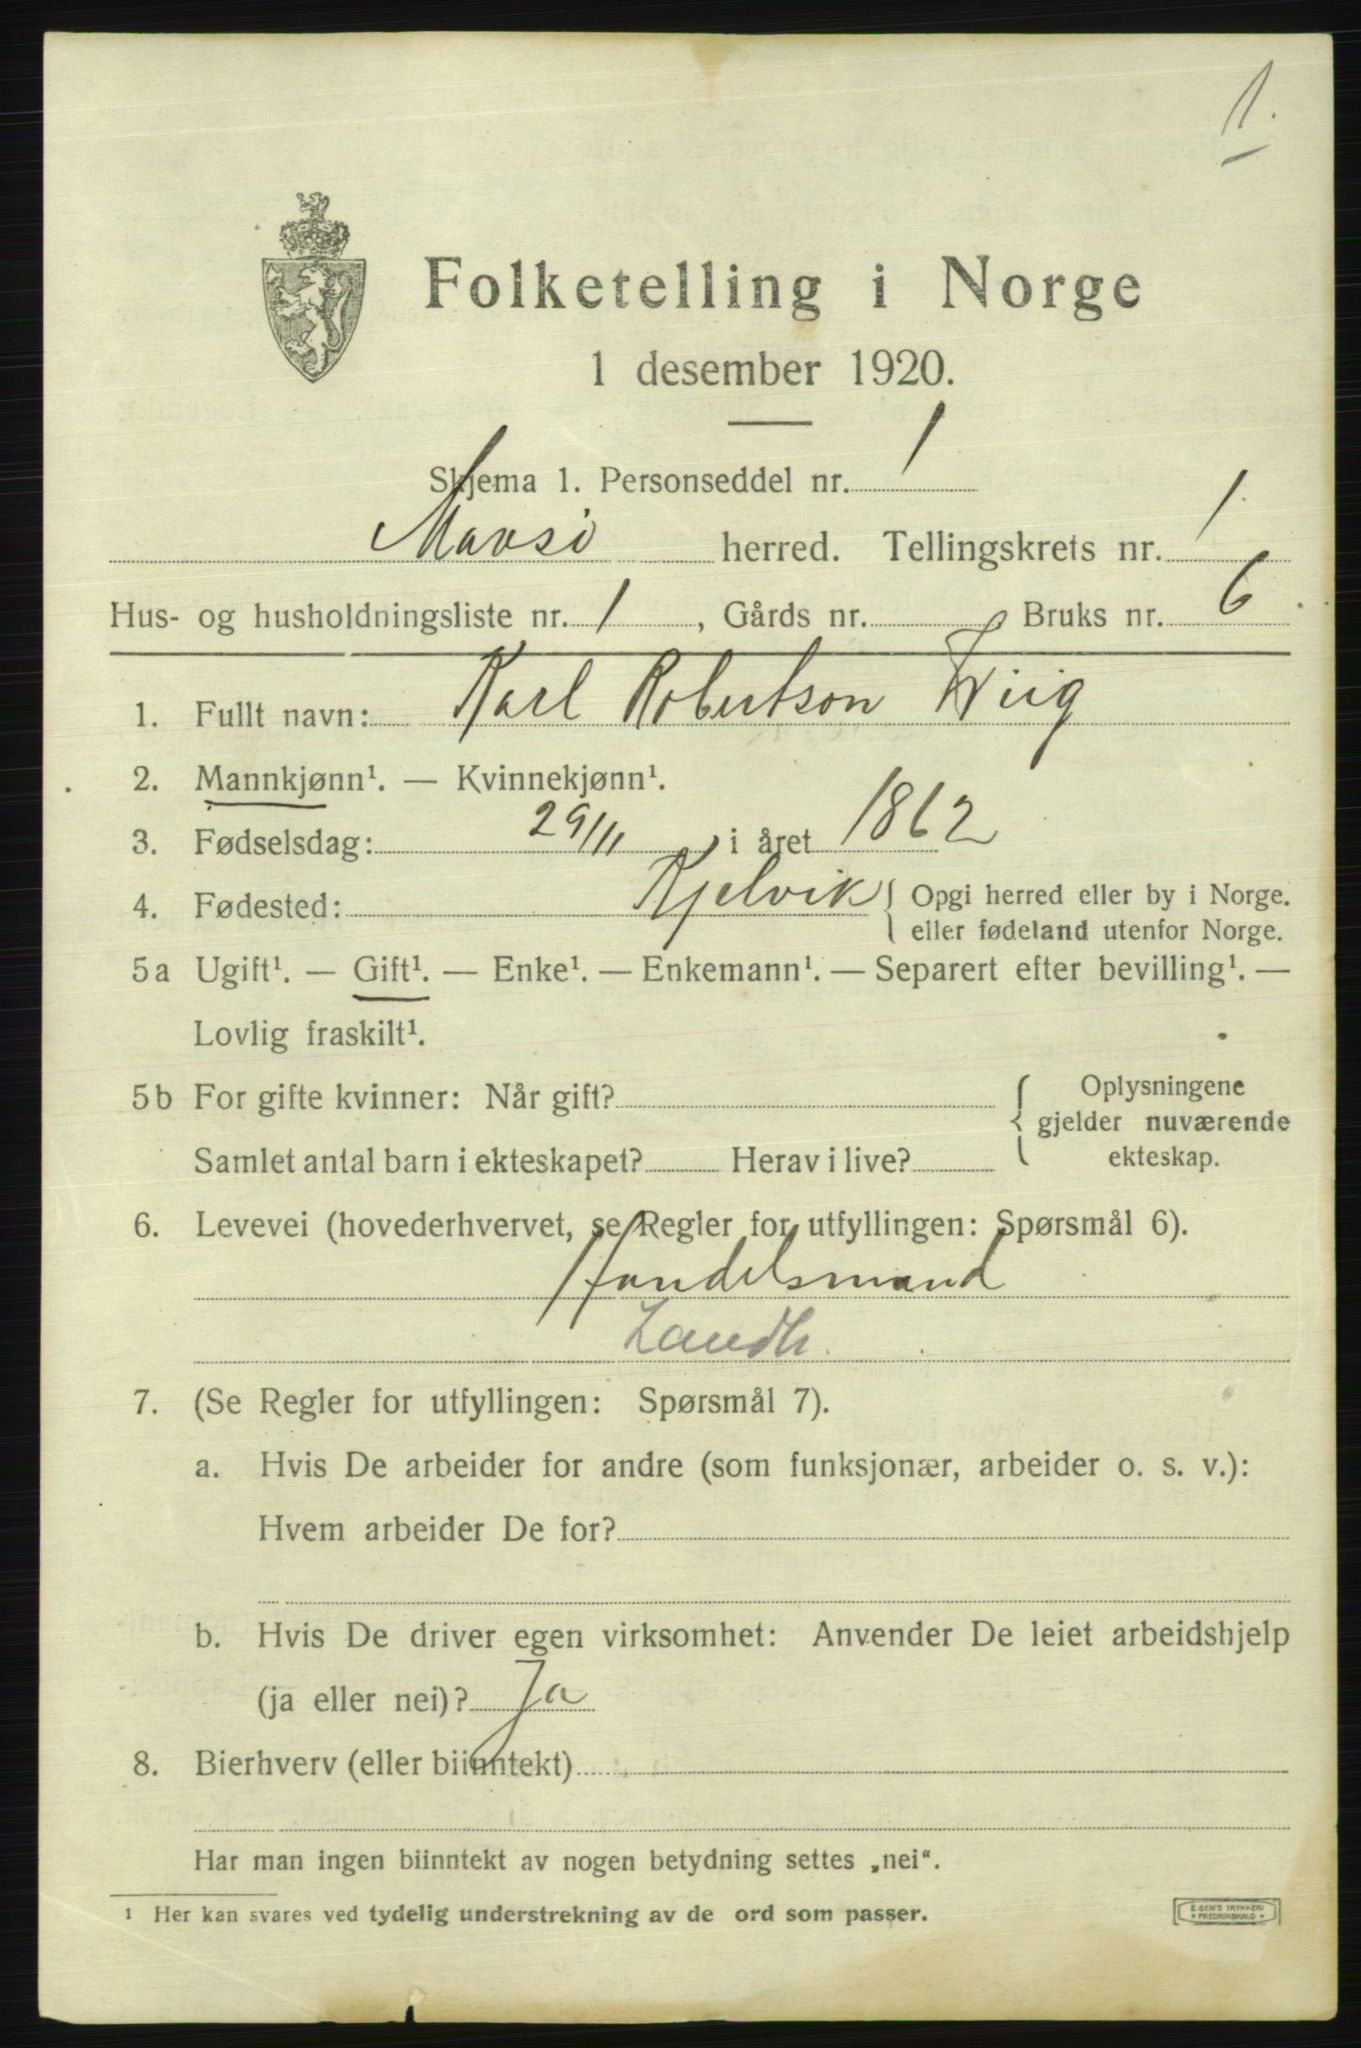 1.
Folketelling i Norge
1 desember 1920.
Skjema 1. Personseddel nr. 1
Maasö herred. Tellingskrets nr. 1
Hus- og husholdningsliste nr. 1, Gårds nr. Bruks nr. 6
1. Fullt navn: Karl Robertson Wiig
2. Mannkjønn¹. — Kvinnekjønn¹.
3. Fødselsdag: 29/11 i året 1862
4. Fødested: Kjelvik { Opgi herred eller by i Norge.
eller fødeland utenfor Norge.
5a Ugift¹. — Gift¹. — Enke¹. — Enkemann¹. — Separert efter bevilling¹. —
Lovlig fraskilt¹.
5b For gifte kvinner: Når gift? { Oplysningene
gjelder nuværende
Samlet antal barn i ekteskapet? Herav i live? ekteskap.
6. Levevei (hovederhvervet, se Regler for utfyllingen: Spørsmål 6).
Handelsmand
Landh.
7. (Se Regler for utfyllingen: Spørsmål 7).
a. Hvis De arbeider for andre (som funksjonær, arbeider o. s. v.):
Hvem arbeider De for?
b. Hvis De driver egen virksomhet: Anvender De leiet arbeidshjelp
(ja eller nei)? Ja
8. Bierhverv (eller biinntekt)
Har man ingen biinntekt av nogen betydning settes „nei“.
¹ Her kan svares ved tydelig understrekning av de ord som passer.
E. SEM'S TRYKKERI
* FREDRIKSHALD *